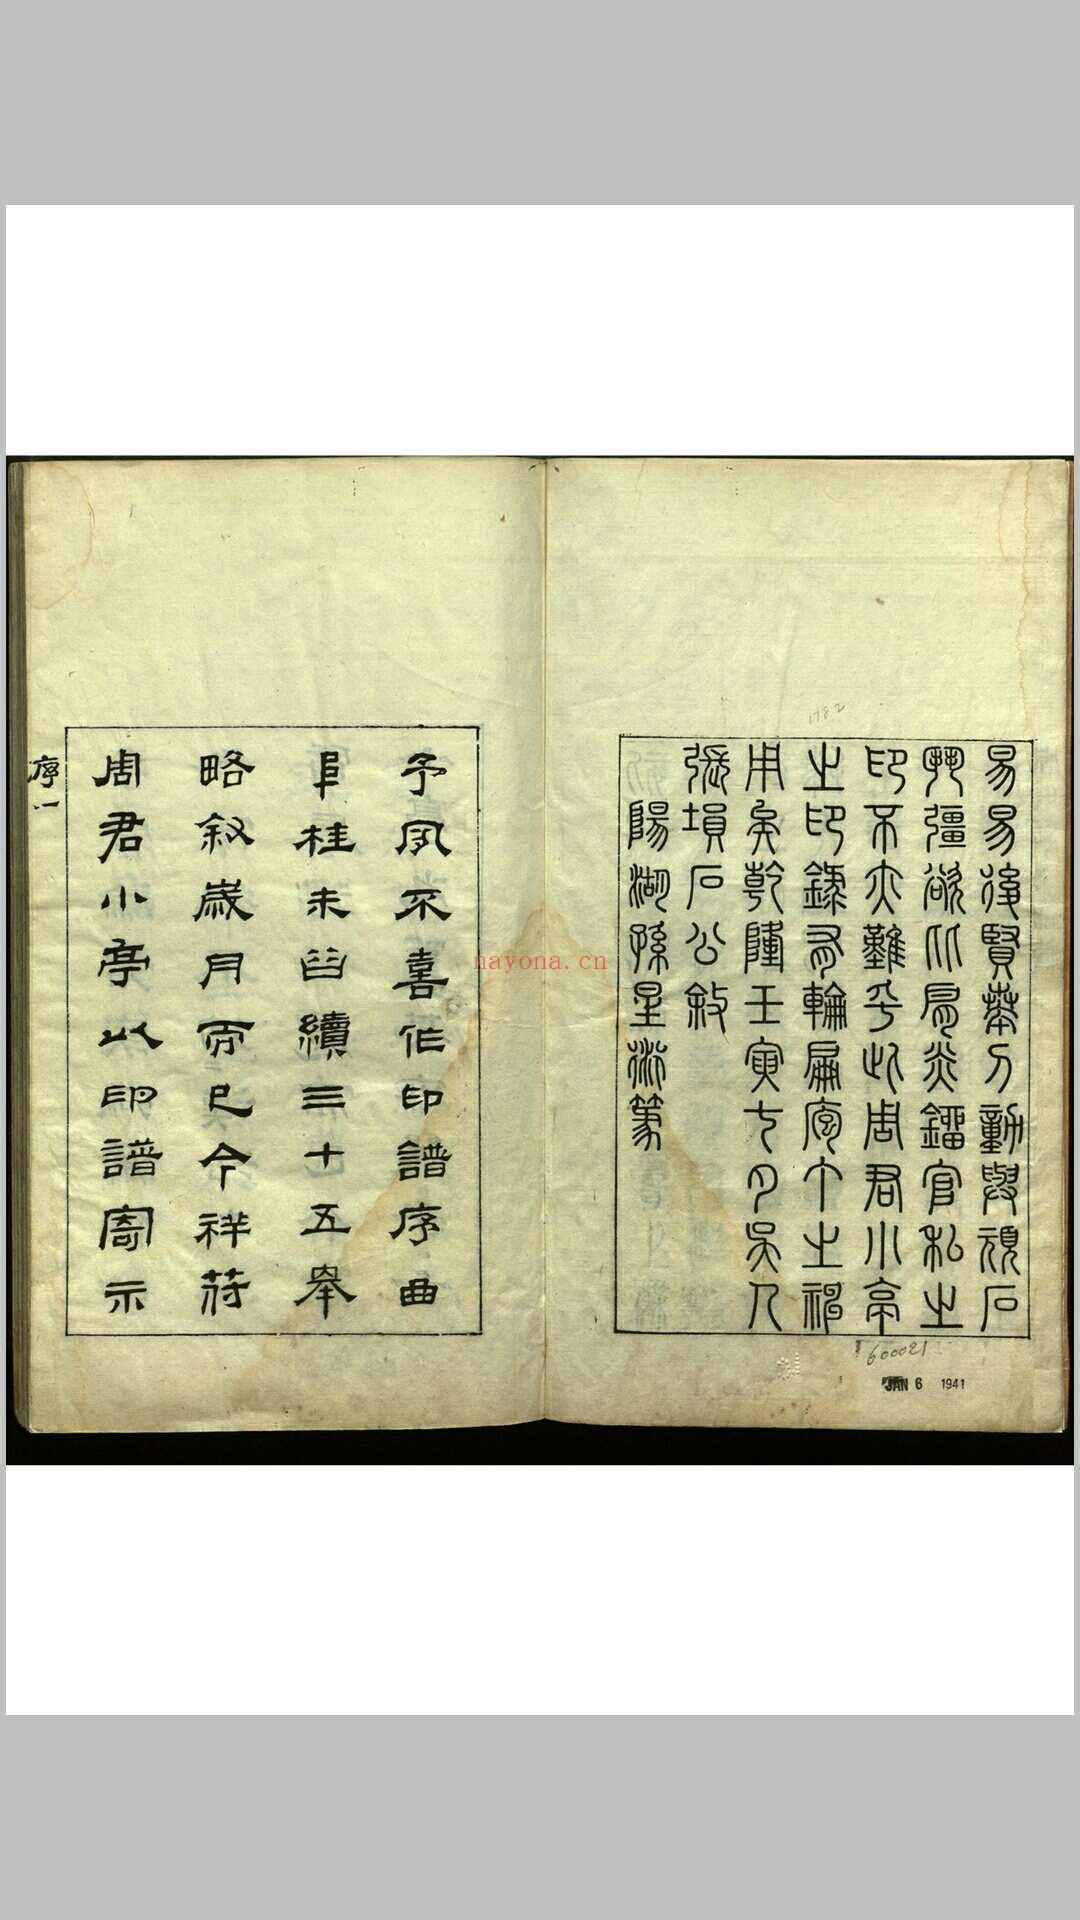 易易後賢奉刀動與頑石
彊欲比肩炎鐂官私之
印不亦難乎此周君小亭
之印錄有輪扁庖丁之神
用矣乾隆壬寅七月吳人
張塤石公敘
陽湖孫星衍篆
1782
600021
JAN 6 1941
予夙不喜作印譜序曲
阜桂未谷續三十五舉
略敘歲月而已今祥符
周君小亭以印譜寄示
序一
nayona.cn